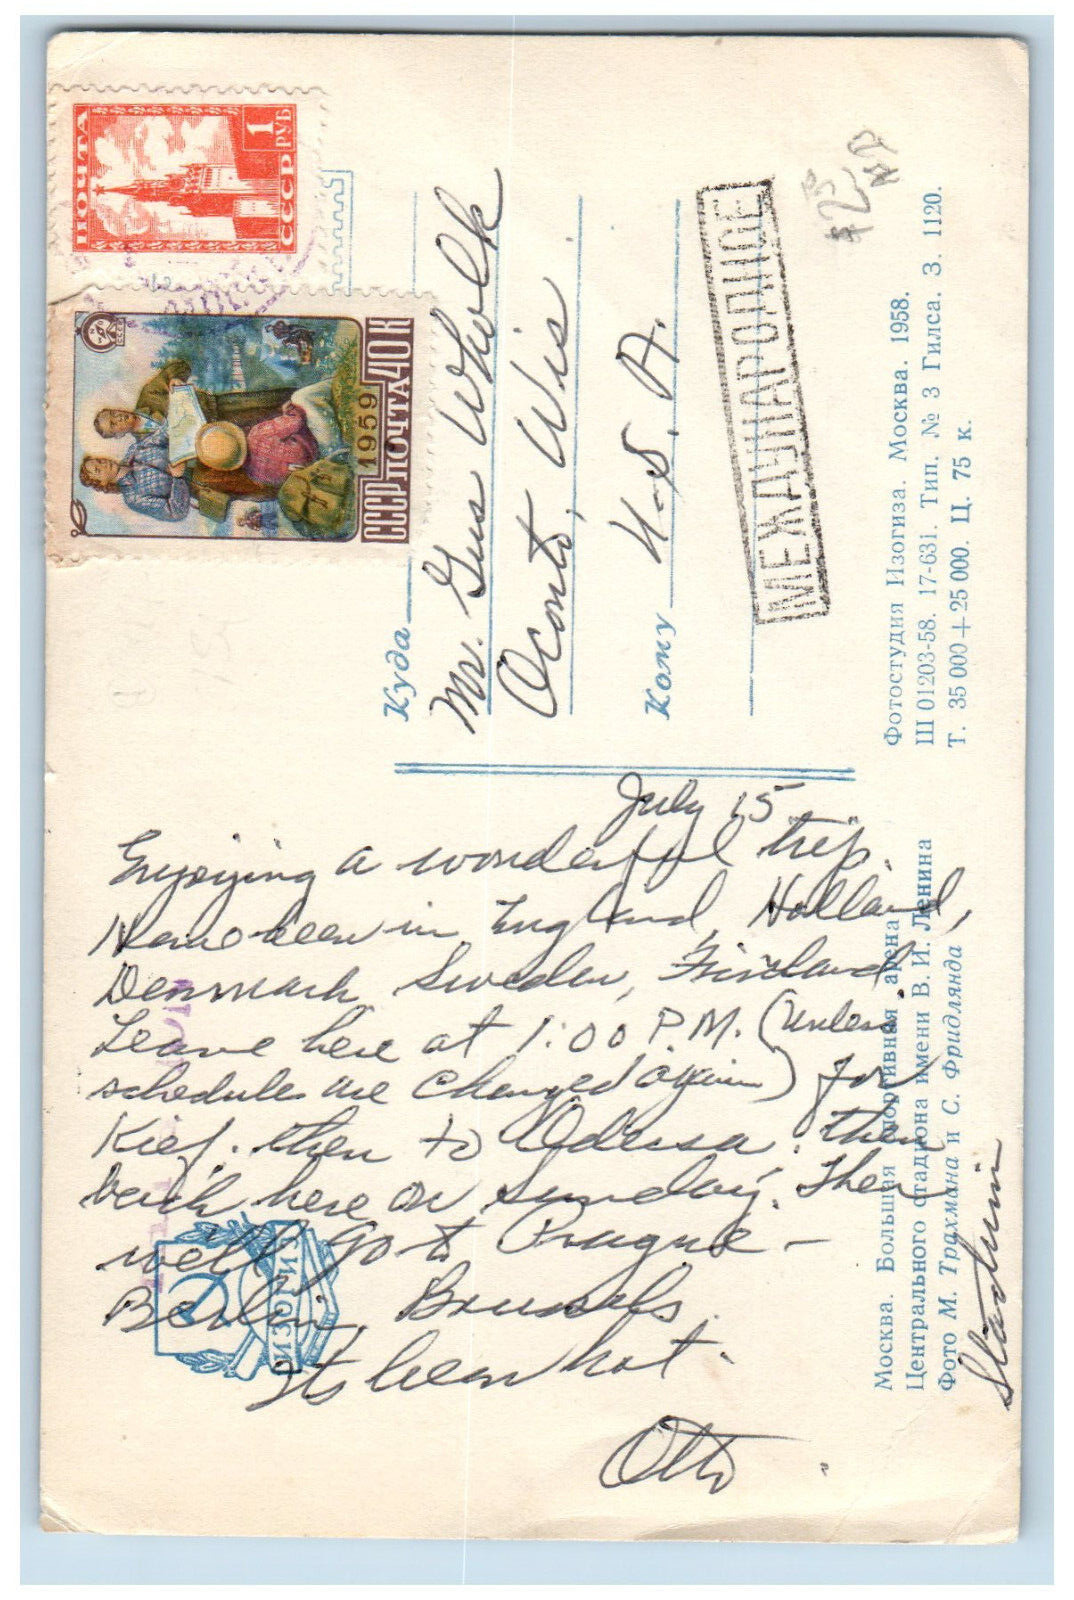 ПОЧТА
1 РУБ
СССР
1959
СССР ПОЧТА 40 К
$2500
NP
Куда
Mr. Gus Wholk
Oconto, Wis
Кому
U.S.A.
МЕЖДУНАРОДНОЕ
Фотостудия Изогиза. Москва. 1958.
Ш 01203-58. 17-631. Тип. № 3 Гилса. З. 1120.
Т. 35 000+25 000. Ц. 75 к.
July 15
Enjoying a wonderful trip.
Have been in England, Holland,
Denmark, Sweden, Finland
Leave here at 1:00 P.M. (unless
schedules are changed again) for
Kief. then to Odessa. then
back here on Sunday. Then
we'll go to Prague –
Berlin, Brussels.
Its been hot.
Otto
ИЗОГИЗ
Москва. Большая спортивная арена
Центрального стадиона имени В. И. Ленина
Фото М. Трахмана и С. Фридлянда